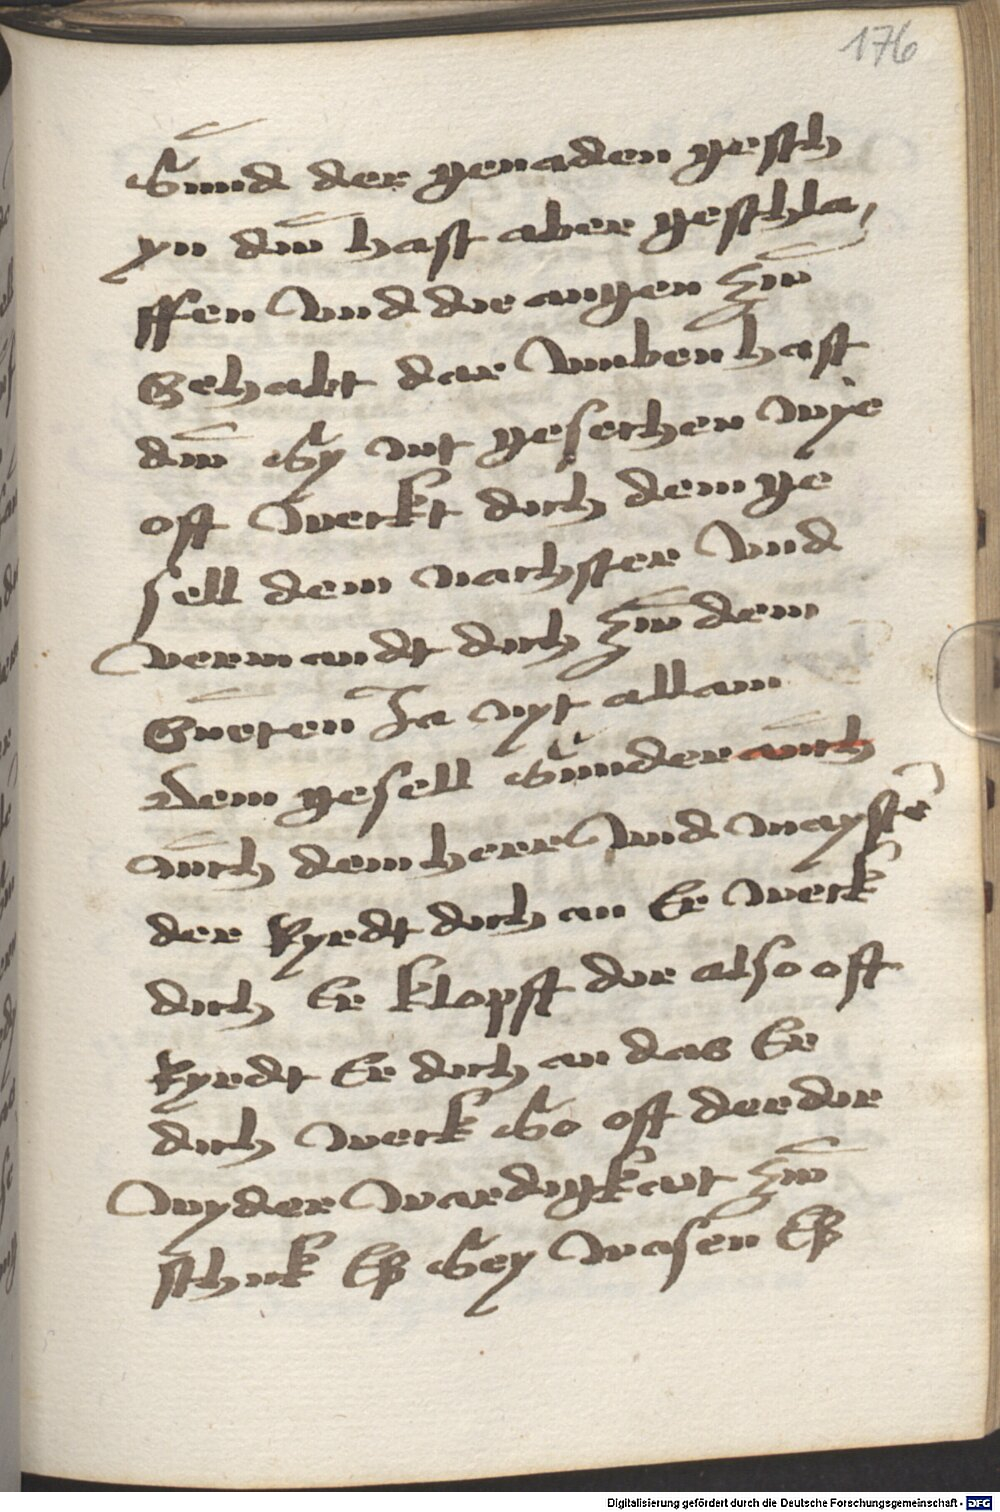 176
Sund der genaden gesch
yn dūn hast aber geschla,
ffen vnd die augen zūn
Gehabt dar vmben hast
dūn Sy nit gesechen wye
oft weckt dich dein ge
sell dein nachster vnd
vermandt dich zūn dem
Gueten Ja nyt allain
dein gesell Sunder auch
auch dein herr vnd mayste
der Ryedt dich an Er weck
dich Er klopft dir also oft
Ryedt Er dich an das Er
dich weck So oft der dir
wyder wardigkait zūn
schick Es Sey wasen Es
Digitalisierung gefördert durch die Deutsche Forschungsgemeinschaft - DFG